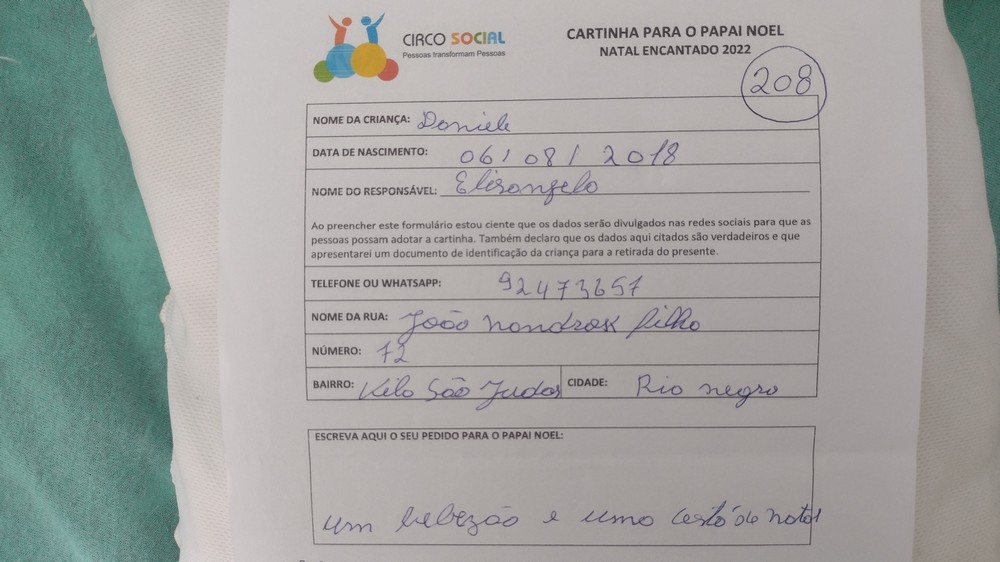 CIRCO SOCIAL
Pessoas transformam Pessoas
CARTINHA PARA O PAPAI NOEL
NATAL ENCANTADO 2022
208
NOME DA CRIANÇA: Daniele
DATA DE NASCIMENTO: 06/08/2018
NOME DO RESPONSÁVEL: Elisangela
Ao preencher este formulário estou ciente que os dados serão divulgados nas redes sociais para que as
pessoas possam adotar a cartinha. Também declaro que os dados aqui citados são verdadeiros e que
apresentarei um documento de identificação da criança para a retirada do presente.
TELEFONE OU WHATSAPP: 92473657
NOME DA RUA: João filho
NÚMERO: 72
BAIRRO: São Judas CIDADE: Rio negro
ESCREVA AQUI O SEU PEDIDO PARA O PAPAI NOEL:
um bebezão e uma cesta de natal